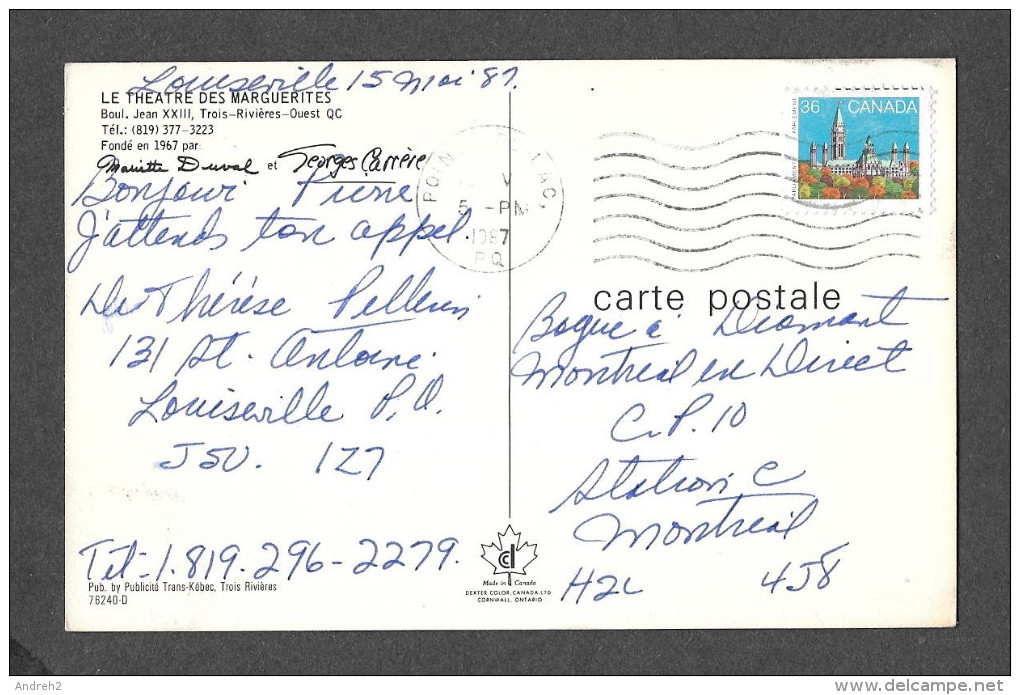 Louiseville 15 Mai 87.
LE THEATRE DES MARGUERITES
Boul. Jean XXIII, Trois-Rivières-Ouest QC
Tél.: (819) 377-3223
Fondé en 1967 par:
Mariette Duval et Georges Carrère
Bonjour Pierre
J'attends ton appel.
De Thérèse Pellerin
131 St. Antoine.
Louiseville P.Q.
J5V. 1Z7
Tél-1.819.296-2279.
Pub. by Publicité Trans-Kébec, Trois Rivières
76240-D
POIN LAC
V
5 -PM
1987
PQ
36 CANADA
PARLEMENT
PARLIAMENT
carte postale
Bague à Diamant
Montréal en Direct
C.P. 10
Station C
Montreal
H2L 4J8
Made in Canada
DEXTER COLOR, CANADA, LTD.
CORNWALL, ONTARIO
Andreh2
www.delcampe.net